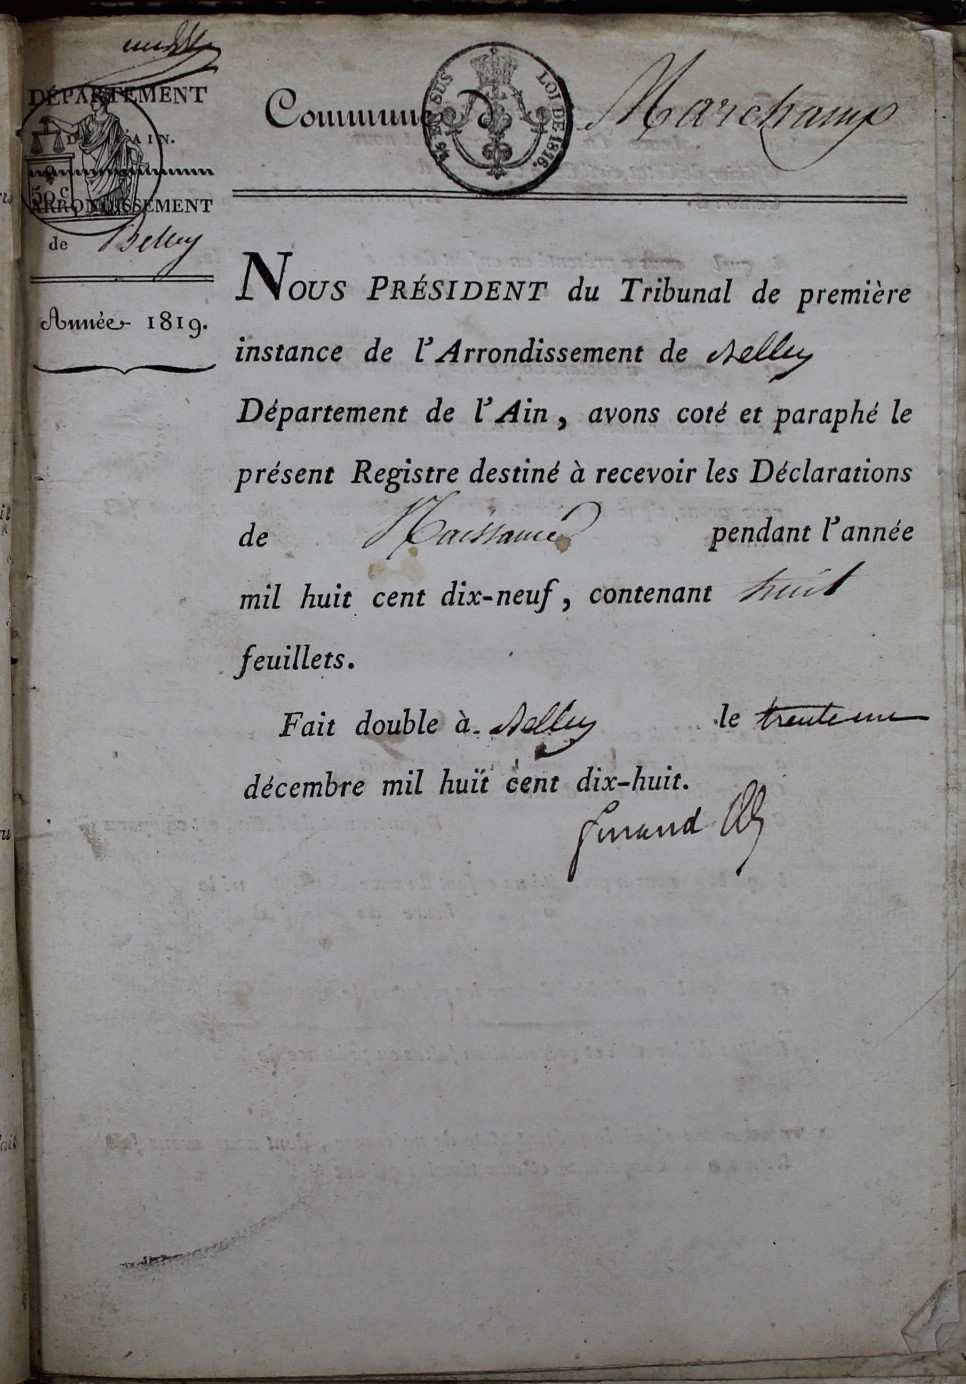 DÉPARTEMENT
DE L'AIN.
50 c
ARRONDISSEMENT
de Belley
Année 1819.
Commune d Marchamp
EN SUS
LOI DE 1816.
NOUS PRÉSIDENT du Tribunal de première
instance de l'Arrondissement de Belley
Département de l'Ain, avons coté et paraphé le
présent Registre destiné à recevoir les Déclarations
de Naissance pendant l'année
mil huit cent dix-neuf, contenant huit
feuillets.
Fait double à Belley le trente un
décembre mil huit cent dix-huit.